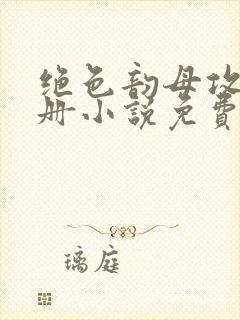 绝色韵母攻
册小说免费
璃庭